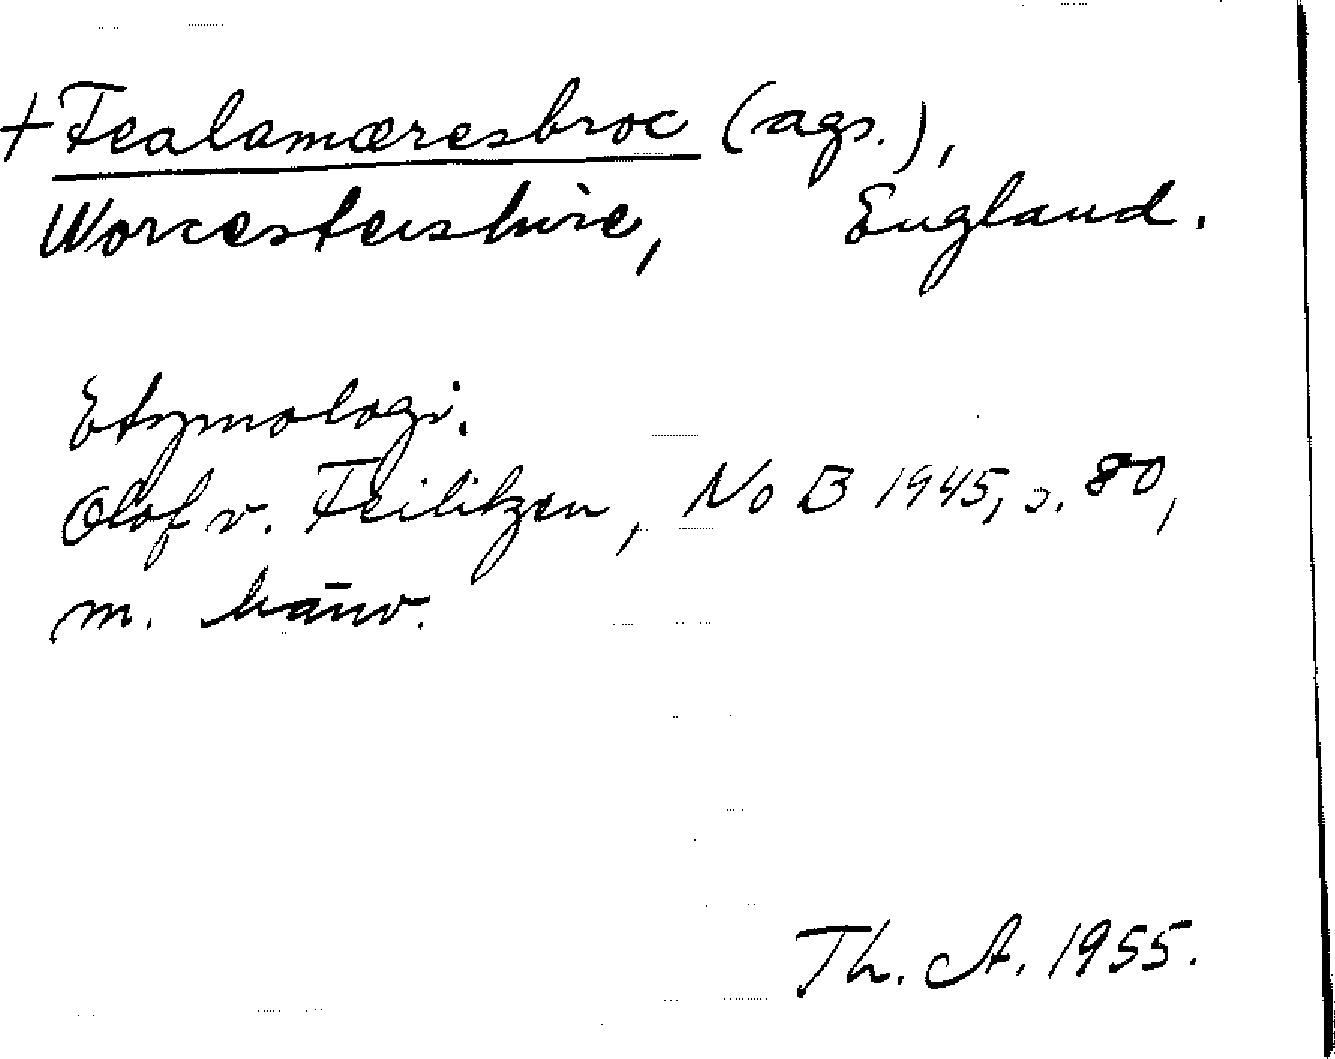 + Fealamæresbroc (ags.),
Worcestershire, England.
Etymologi.
Olof v. Feilitzen, NoB 1945, s. 80,
m. hänv.
Th. A. 1955.